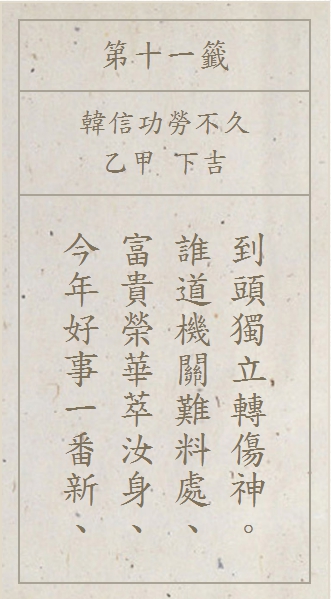 第十一籤
韓信功勞不久
乙甲 下吉
今年好事一番新、
富貴榮華萃汝身、
誰道機關難料處、
到頭獨立轉傷神。